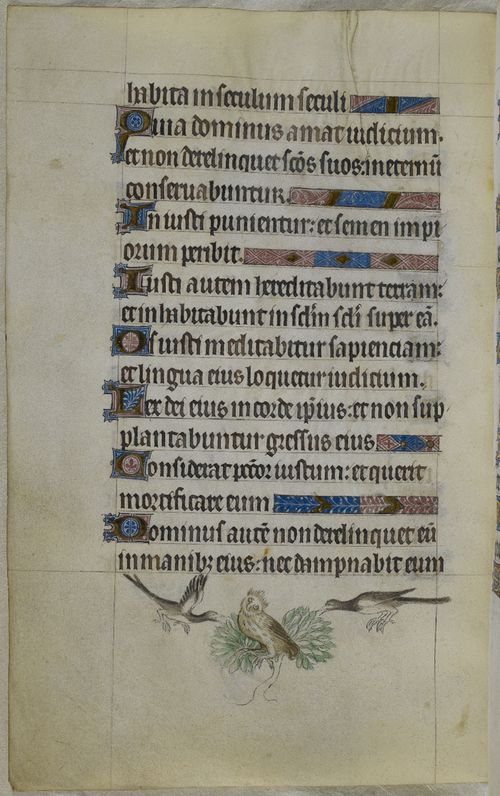 habita in seculum seculi
Quia dominus amat iudicium.
et non derelinquet scōs suos: in eternū
conseruabuntur.
In iusti punientur: et semen impi
orum peribit.
Iusti autem hereditabunt terram:
et in habitabunt in sclm scli super eā.
Os iusti meditabitur sapienciam:
et lingua eius loquetur iudicium.
Lex dei eius in corde ipius: et non sup
plantabuntur gressus eius
Considerat pctōr iustum: et querit
mortificare eum
Dominus autē non derelinquet eū
in manibꝫ eius: nec dampnabit eum